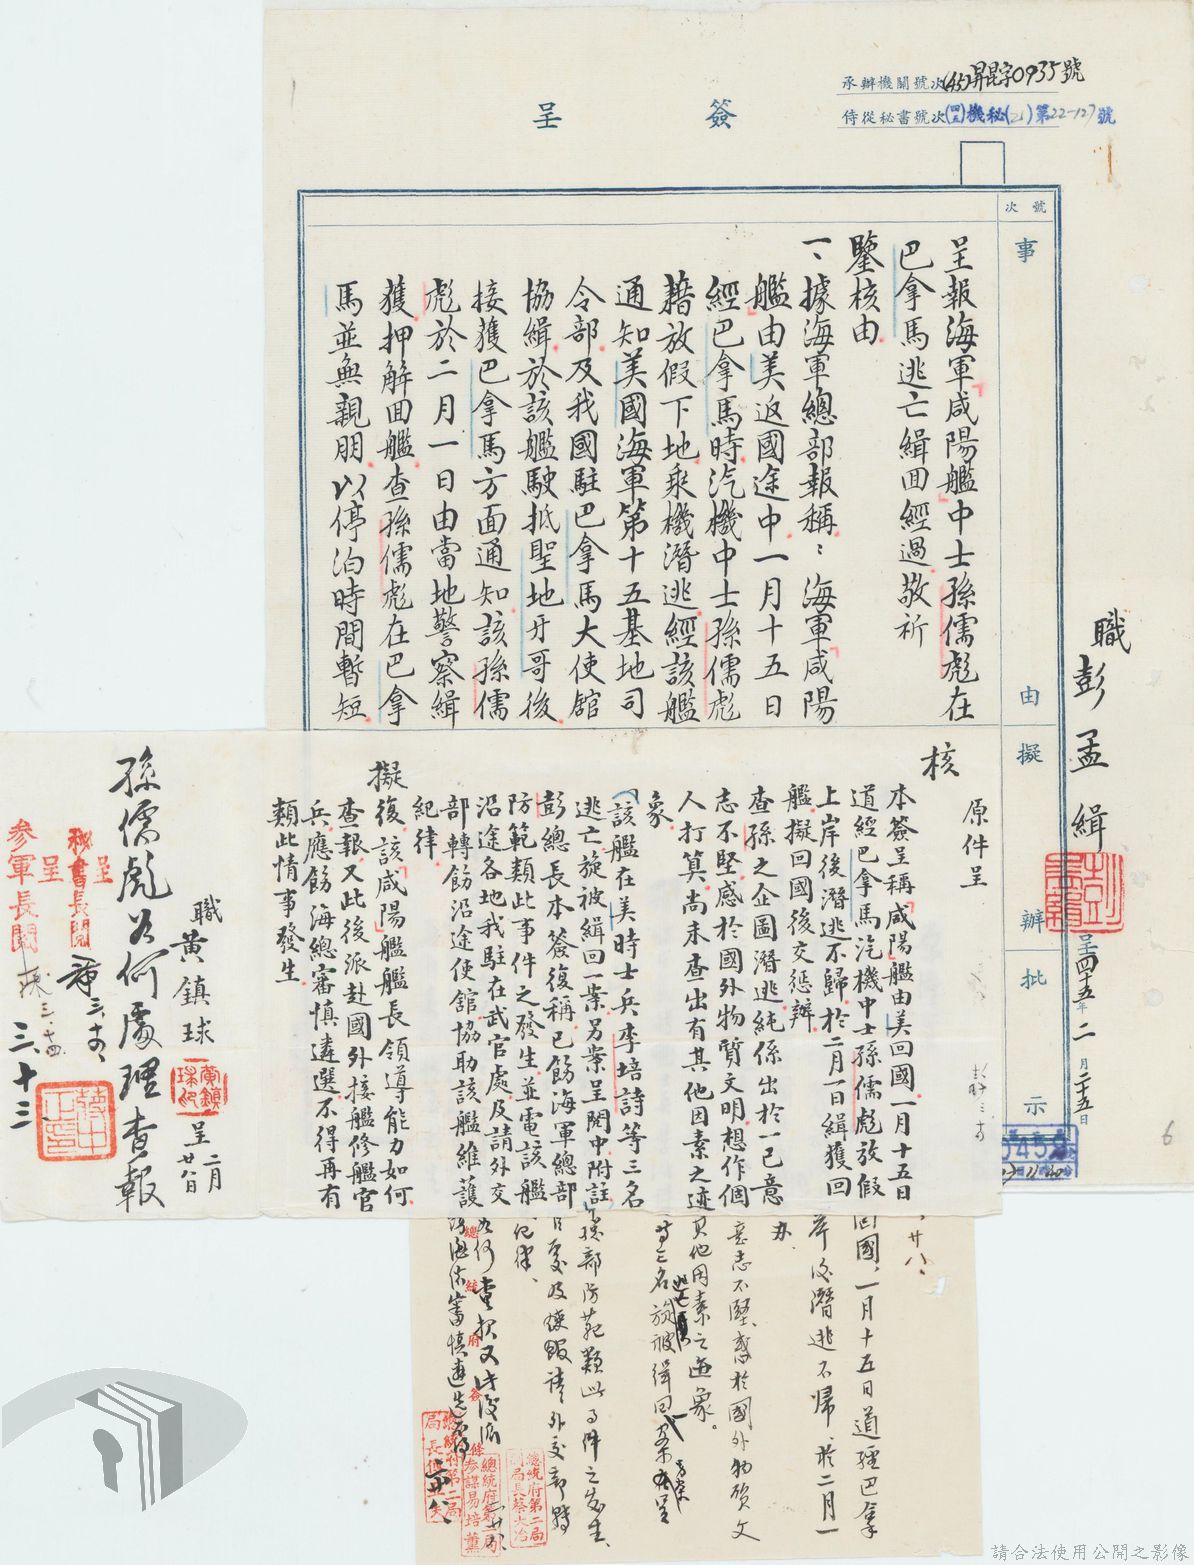 承辦機關號次(45)昇昆字0935號
侍從秘書號次(四五)機秘(乙)第22-127號
簽呈
號次
事由
擬辦
批示
呈報海軍咸陽艦中士孫儒彪在
巴拿馬逃亡緝回經過敬祈
鑒核由
一、據海軍總部報稱：海軍咸陽
艦由美返國途中一月十五日
經巴拿馬時汽機中士孫儒彪
藉放假下地乘機潛逃經該艦
通知美國海軍第十五基地司
令部及我國駐巴拿馬大使館
協緝於該艦駛抵聖地牙哥後
接獲巴拿馬方面通知該孫儒
彪於二月一日由當地警察緝
獲押解回艦查孫儒彪在巴拿
馬並無親朋以停泊時間暫短
職彭孟緝
呈四十五年二月二十五日
6
核
原件呈
本簽呈稱咸陽艦由美回國一月十五日
道經巴拿馬汽機中士孫儒彪放假
上岸後潛逃不歸於二月一日緝獲回
艦擬回國後交懲辦
查孫之企圖潛逃純係出於一己意
志不堅惑於國外物質文明想作個
人打算尚未查出有其他因素之迹
象
(該艦在美時士兵李培詩等三名
逃亡旋被緝回一案另案呈閱中附註)
彭總長本簽復稱已飭海軍總部
防範類此事件之發生並電該艦
沿途各地我駐在武官處及請外交
部轉飭沿途使館協助該艦維護
紀律
擬復該咸陽艦艦長領導能力如何
查報又此後派赴國外接艦修艦官
兵應飭海總審慎遴選不得再有
類此情事發生
職黃鎮球
呈二月廿八日
孫儒彪如何處理查報
三、十三
呈
秘書長閱
呈
參軍長閱
廿八、
回國，一月十五日道經巴拿
岸後潛逃不歸、於二月一
办
意志不堅惑於國外物質文
其他因素之迹象。
等三名旋被緝回
總部防範類此事件之發生、
紀律、
如何查报又此後派
海總審慎遴選
總統府簽條
總統府第二局
局長傅亞夫
總統府第二局
參謀易培薰
總統府第二局
副局長蔡大冶
請合法使用公開之影像